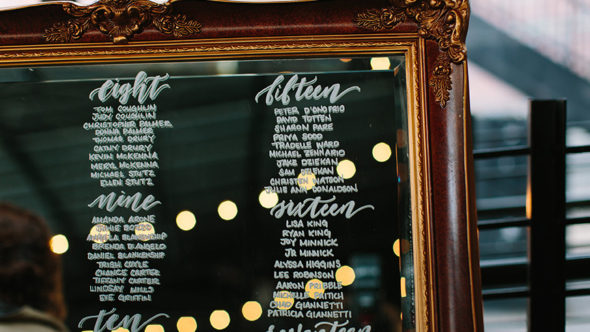 eight
TOM COUGHLIN
JUDY COUGHLIN
CHRISTOPHER PALMER
DONNA PALMER
THOMAS DRURY
CATHY DRURY
KEVIN MCKENNA
MERYL MCKENNA
MICHAEL STUTZ
ELLEN STUTZ
nine
AMANDA ARONE
ANGELA BLANKENSHIP
BRENDA D'ANGELO
DANIEL BLANKENSHIP
TRISH COYLE
CHANCE CARTER
TIFFANY CARTER
LINDSAY WILD
EVE GRIFFIN
ten
fifteen
PETER D'ONOFRIO
DAVID TOTTEN
SHARON PARE
PRIYA SOOD
TRADELLE WARD
MICHAEL ZENNARIO
JAKE DZIEKAN
SAM DZIEKAN
CHRISTEN WATSON
JULIE ANN DONALDSON
sixteen
LISA KING
RYAN KING
JOY MINNICK
JR MINNICK
ALYSSA HIGGINS
LEE ROBINSON
AARON PRIBBLE
MICHELLE FRITCH
CHAD GIANNETTI
PATRICIA GIANNETTI
seventeen